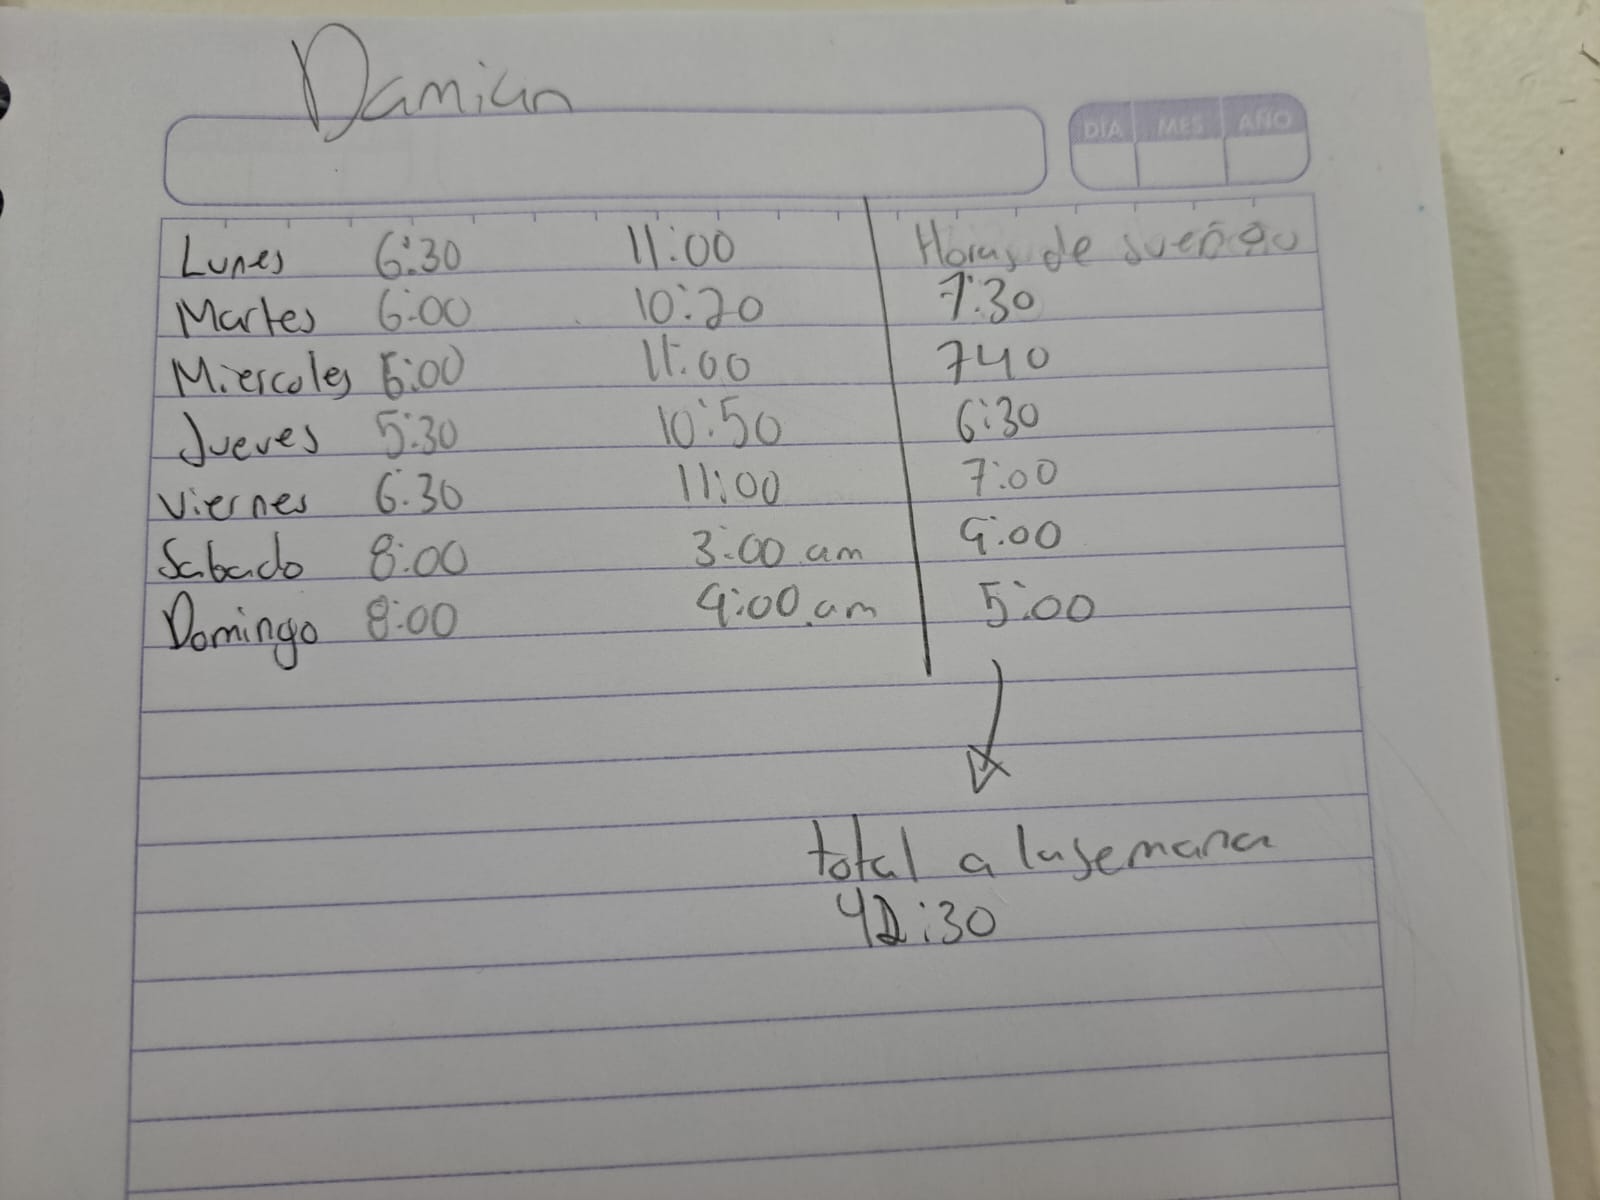 Damian
DÍA MES AÑO
Lunes 6:30 11:00 Horas de sueño
Martes 6:00 10:20 7:30
Miercoles 6:00 11:00 740
Jueves 5:30 10:50 6:30
Viernes 6:30 11:00 7:00
Sabado 8:00 3:00 am 9:00
Domingo 8:00 4:00 am 5:00
total a la semana
42:30